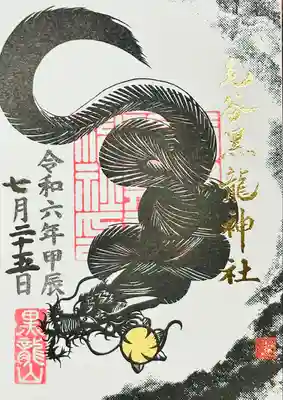 毛谷黑龍神社
令和六年甲辰
七月二十五日
黒龍山